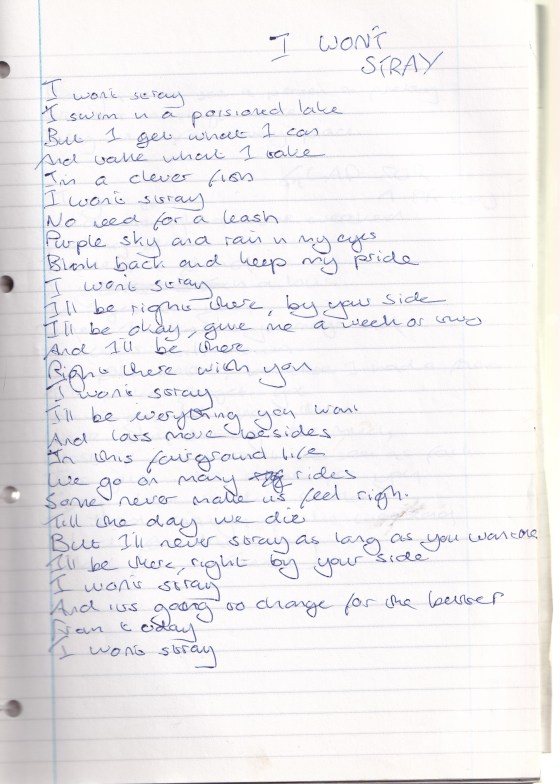 I WON'T
STRAY
I won't stray
I swim in a poisioned lake
But I get what I can
And take what I take
I'm a clever fish
I won't stray
No need for a leash
Purple sky and rain in my eyes
Blink back and keep my pride
I won't stray
I'll be right there, by your side
I'll be okay, give me a week or two
And I'll be there
Right there with you
I won't stray
I'll be everything you want
And lots more besides
In this fairground life
We go on many rides
Some never make us feel right.
Till the day we die
But I'll never stray as long as you want me
I'll be there, right by your side
I won't stray
And its going to change for the better
From today
I won't stray